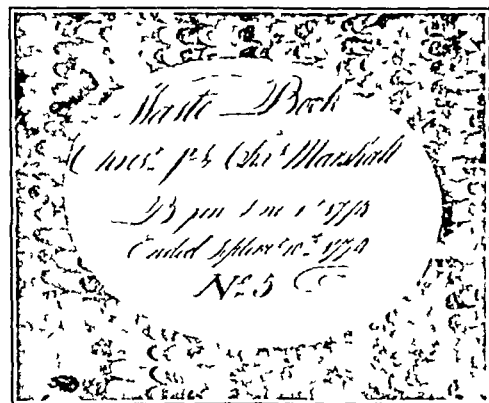 Waste Book
Chrisr. Jr. & Chas. Marshall
Began 1773
Ended Septemr. 10th. 1774
No. 5